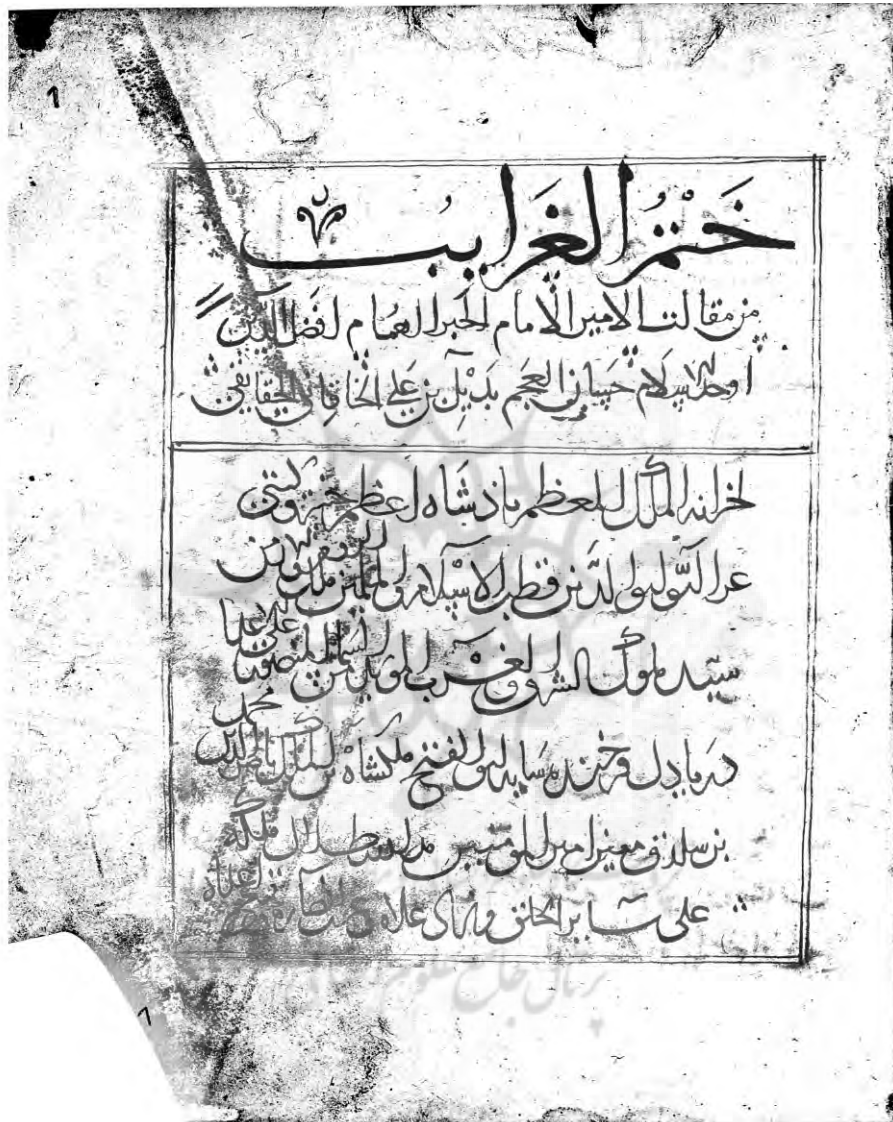 1
ختم الغرایب
من مقالت الامیر الامام الحبر الهمام افضل الدین
اوحد الاسلام حسان العجم بدیل بن علی الخاقانی الحقایقی
لخزانه الملک المعظم پاذشاه اعظم
عز الدولة والدین قطب الاسلام والمسلمین ملک
سید ملوک الشرق والغرب الموید من السماء المنصور علی
محمد
دریادل فرخنده سایه ابو الفتح ملکشاه بن الملک ناصر الدین
بن سلدق معین امیر المومنین مد الله ظلال ملکه
علی سایر الخلق و
پرتال جامع علوم
1